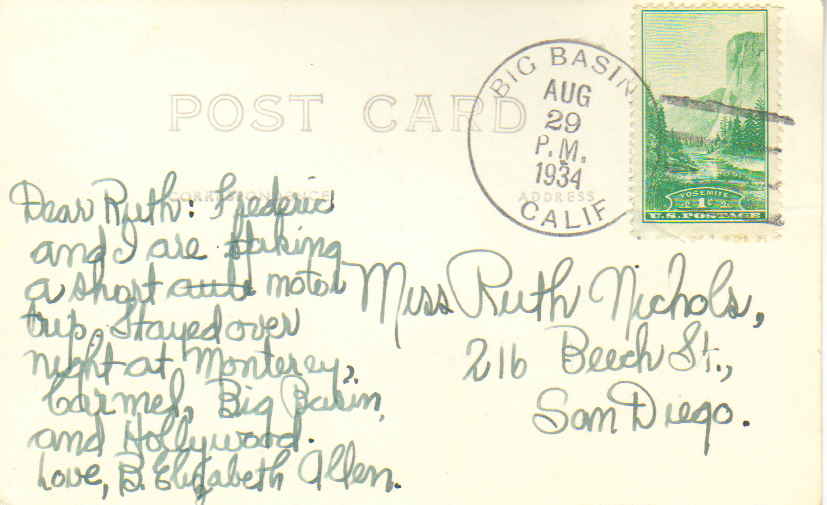 BIG BASIN
AUG
29
P.M.
1934
CALIF
YOSEMITE
1¢
U.S. POSTAGE
POST CARD
CORRESPONDENCE
ADDRESS
Dear Ruth: Frederic
and I are taking
a short auto motor
trip. Stayed over
night at Monterey,
Carmel, Big Basin,
and Hollywood.
Love, B. Elizabeth Allen.
Miss Ruth Nichols,
216 Beech St.,
San Diego.